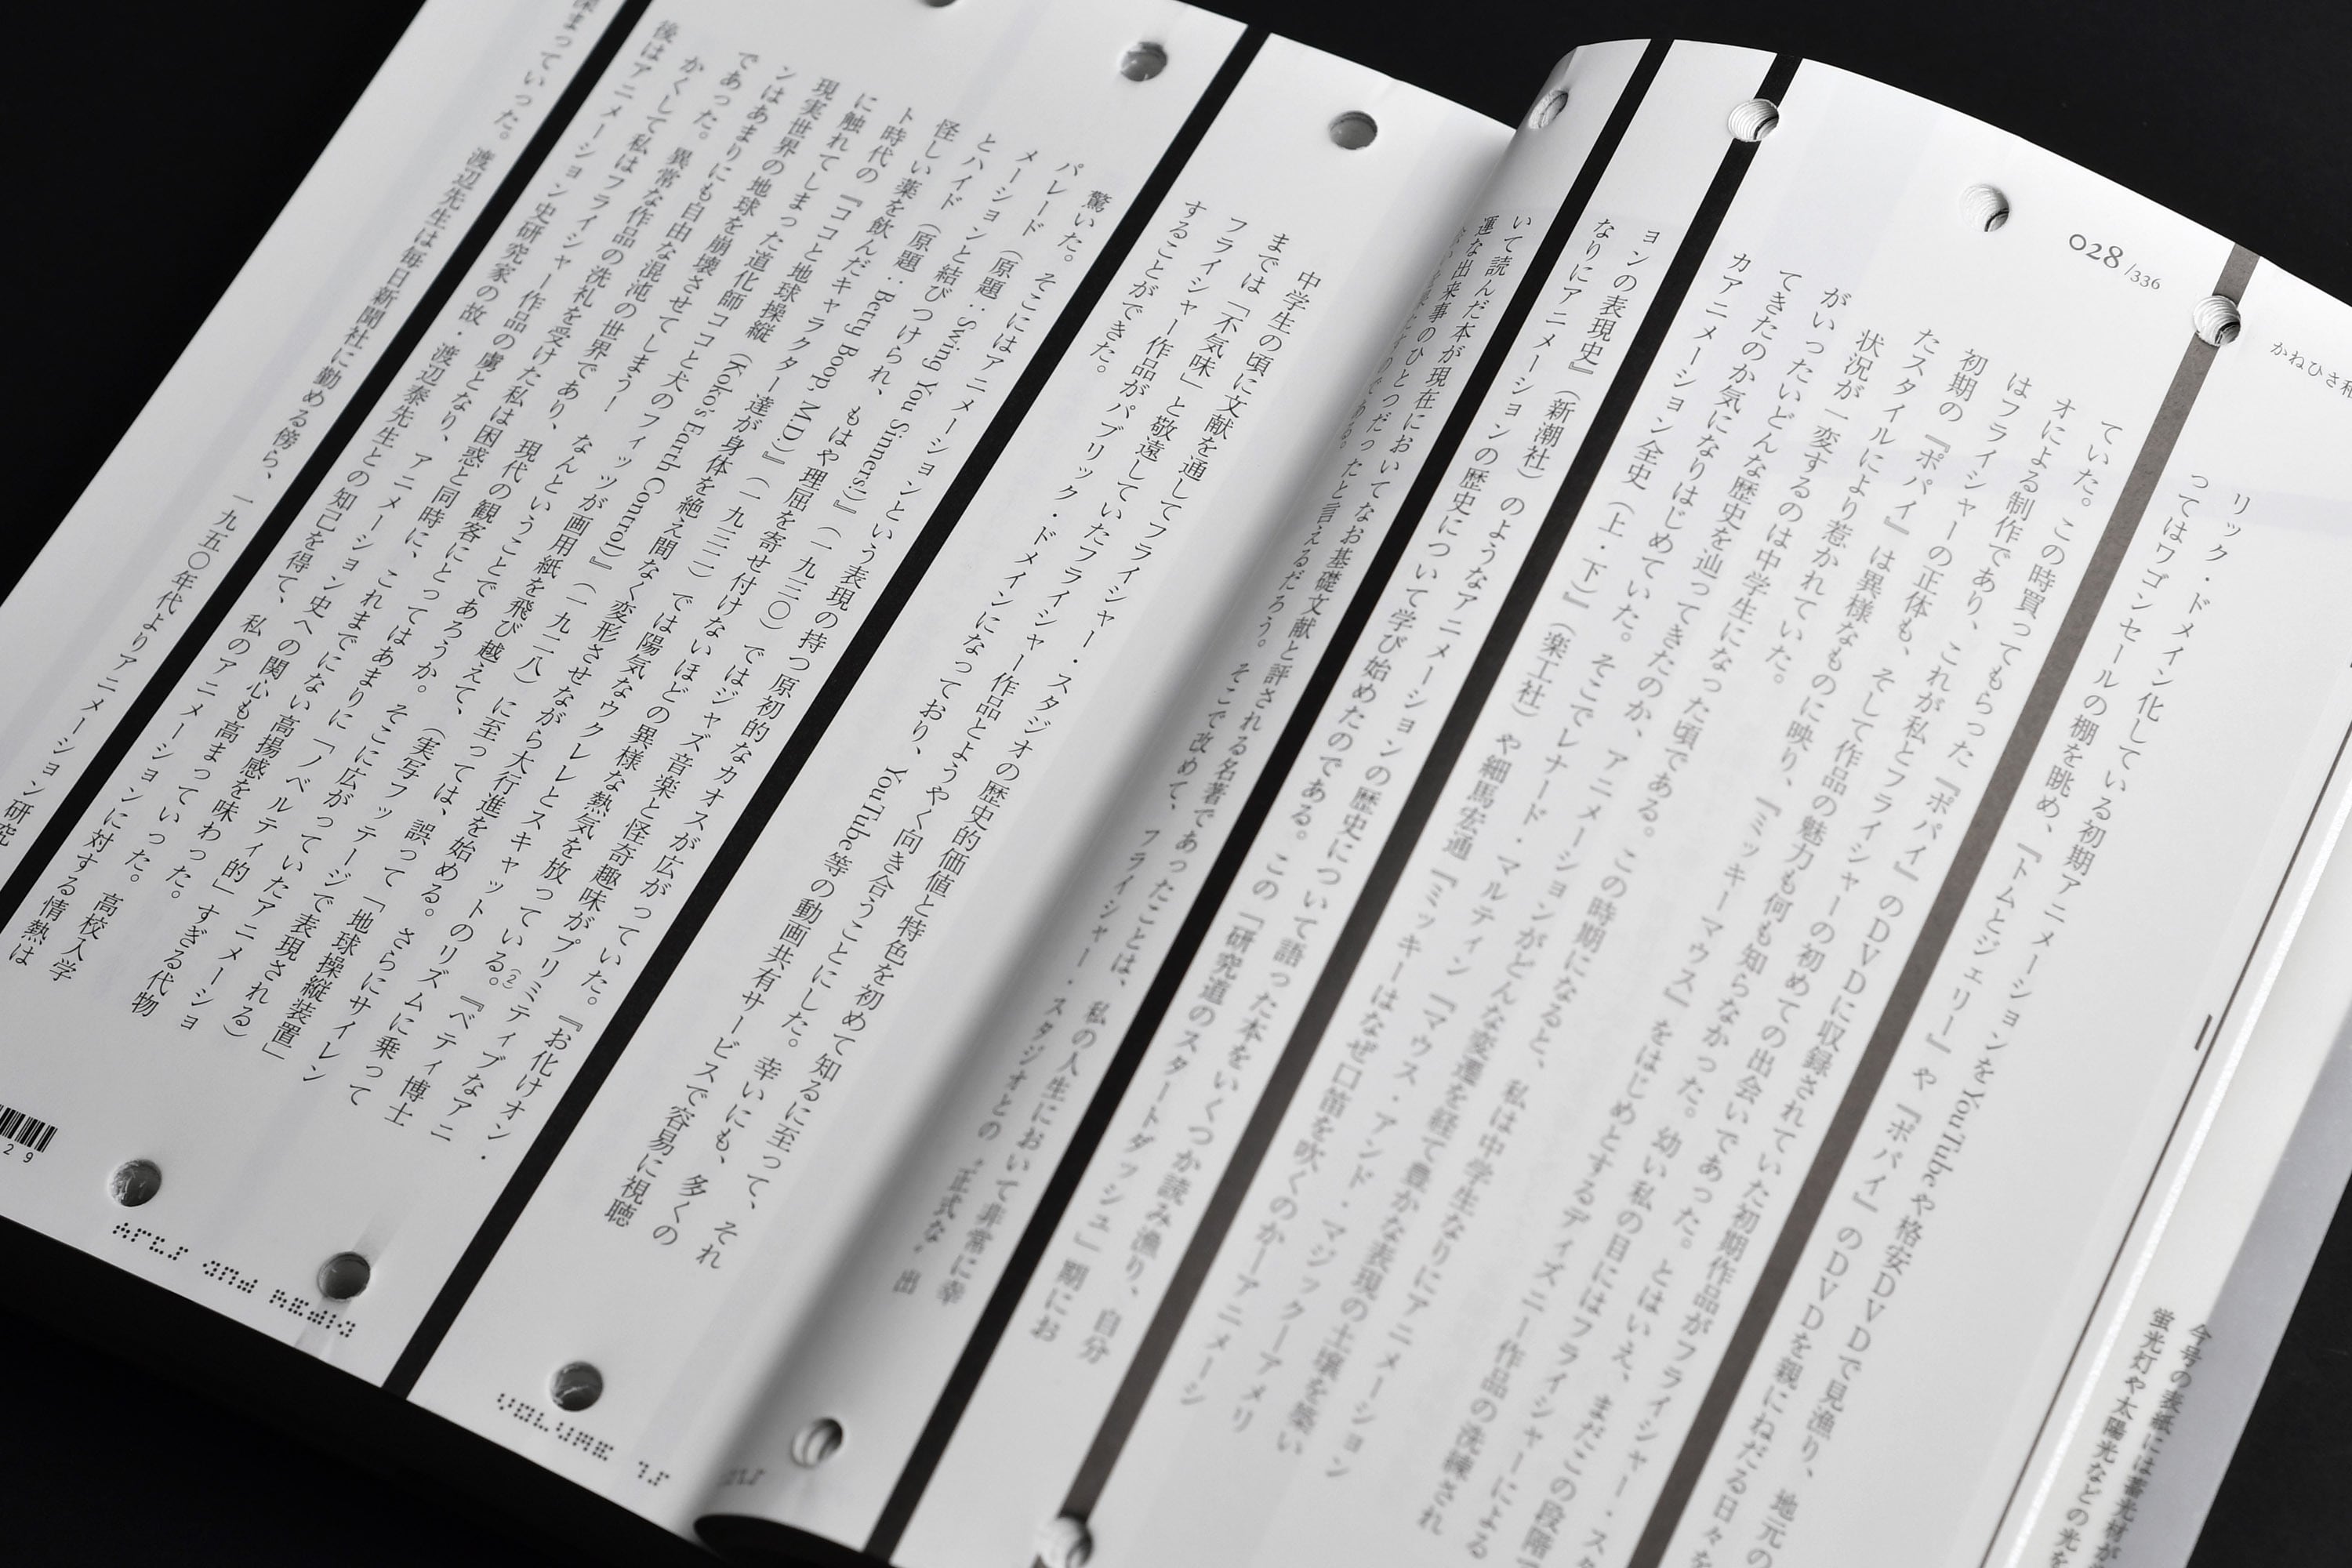 028/336
かねひさ和
リック・ドメイン化している初期アニメーションをYouTubeや格安DVDで見漁り、地元の
ってはワゴンセールの棚を眺め、『トムとジェリー』や『ポパイ』のDVDを親にねだる日々を
ていた。この時買ってもらった『ポパイ』のDVDに収録されていた初期作品がフライシャー・ス
オによる制作であり、これが私とフライシャーの初めての出会いであった。とはいえ、まだこの段階で
はフライシャーの正体も、そして作品の魅力も何も知らなかった。幼い私の目にはフライシャーによる
初期の『ポパイ』は異様なものに映り、『ミッキーマウス』をはじめとするディズニー作品の洗練され
たスタイルにより惹かれていた。
状況が一変するのは中学生になった頃である。この時期になると、私は中学生なりにアニメーション
がいったいどんな歴史を辿ってきたのか、アニメーションがどんな変遷を経て豊かな表現の土壌を築い
てきたのか気になりはじめていた。そこでレナード・マルティン『マウス・アンド・マジック―アメリ
カアニメーション全史（上・下）』（楽工社）や細馬宏通『ミッキーはなぜ口笛を吹くのか―アニメーシ
ョンの表現史』（新潮社）のようなアニメーションの歴史について語った本をいくつか読み漁り、自分
なりにアニメーションの歴史について学び始めたのである。この「研究道のスタートダッシュ」期にお
いて読んだ本が現在においてなお基礎文献と評される名著であったことは、私の人生において非常に幸
運な出来事のひとつだったと言えるだろう。そこで改めて、フライシャー・スタジオとの〝正式な〟出
中学生の頃に文献を通してフライシャー・スタジオの歴史的価値と特色を初めて知るに至って、それ
までは「不気味」と敬遠していたフライシャー作品とようやく向き合うことにした。幸いにも、多くの
フライシャー作品がパブリック・ドメインになっており、YouTube等の動画共有サービスで容易に視聴
することができた。
驚いた。そこにはアニメーションという表現の持つ原初的なカオスが広がっていた。『お化けオン・
パレード（原題：Swing You Sinners!）』（一九三〇）ではジャズ音楽と怪奇趣味がプリミティブなアニ
メーションと結びつけられ、もはや理屈を寄せ付けないほどの異様な熱気を放っている。(2)『ベティ博士
とハイド（原題：Betty Boop, M.D.）』（一九三二）では陽気なウクレレとスキャットのリズムに乗って
怪しい薬を飲んだキャラクター達が身体を絶え間なく変形させながら大行進を始める。さらにサイレン
ト時代の『ココと地球操縦（Koko's Earth Control）』（一九二八）に至っては、誤って「地球操縦装置」
に触れてしまった道化師ココと犬のフィッツが画用紙を飛び越えて、（実写フッテージで表現される）
現実世界の地球を崩壊させてしまう！　なんということであろうか。そこに広がっていたアニメーショ
ンはあまりにも自由な混沌の世界であり、現代の観客にとってはあまりに「ノベルティ的」すぎる代物
であった。異常な作品の洗礼を受けた私は困惑と同時に、これまでにない高揚感を味わった。
かくして私はフライシャー作品の虜となり、アニメーション史への関心も高まっていった。高校入学
後はアニメーション史研究家の故・渡辺泰先生との知己を得て、私のアニメーションに対する情熱は
深まっていった。渡辺先生は毎日新聞社に勤める傍ら、一九五〇年代よりアニメーション研究
29
ARTS AND MEDIA
VOLUME 15
今号の表紙には蓄光材が
蛍光灯や太陽光などの光を